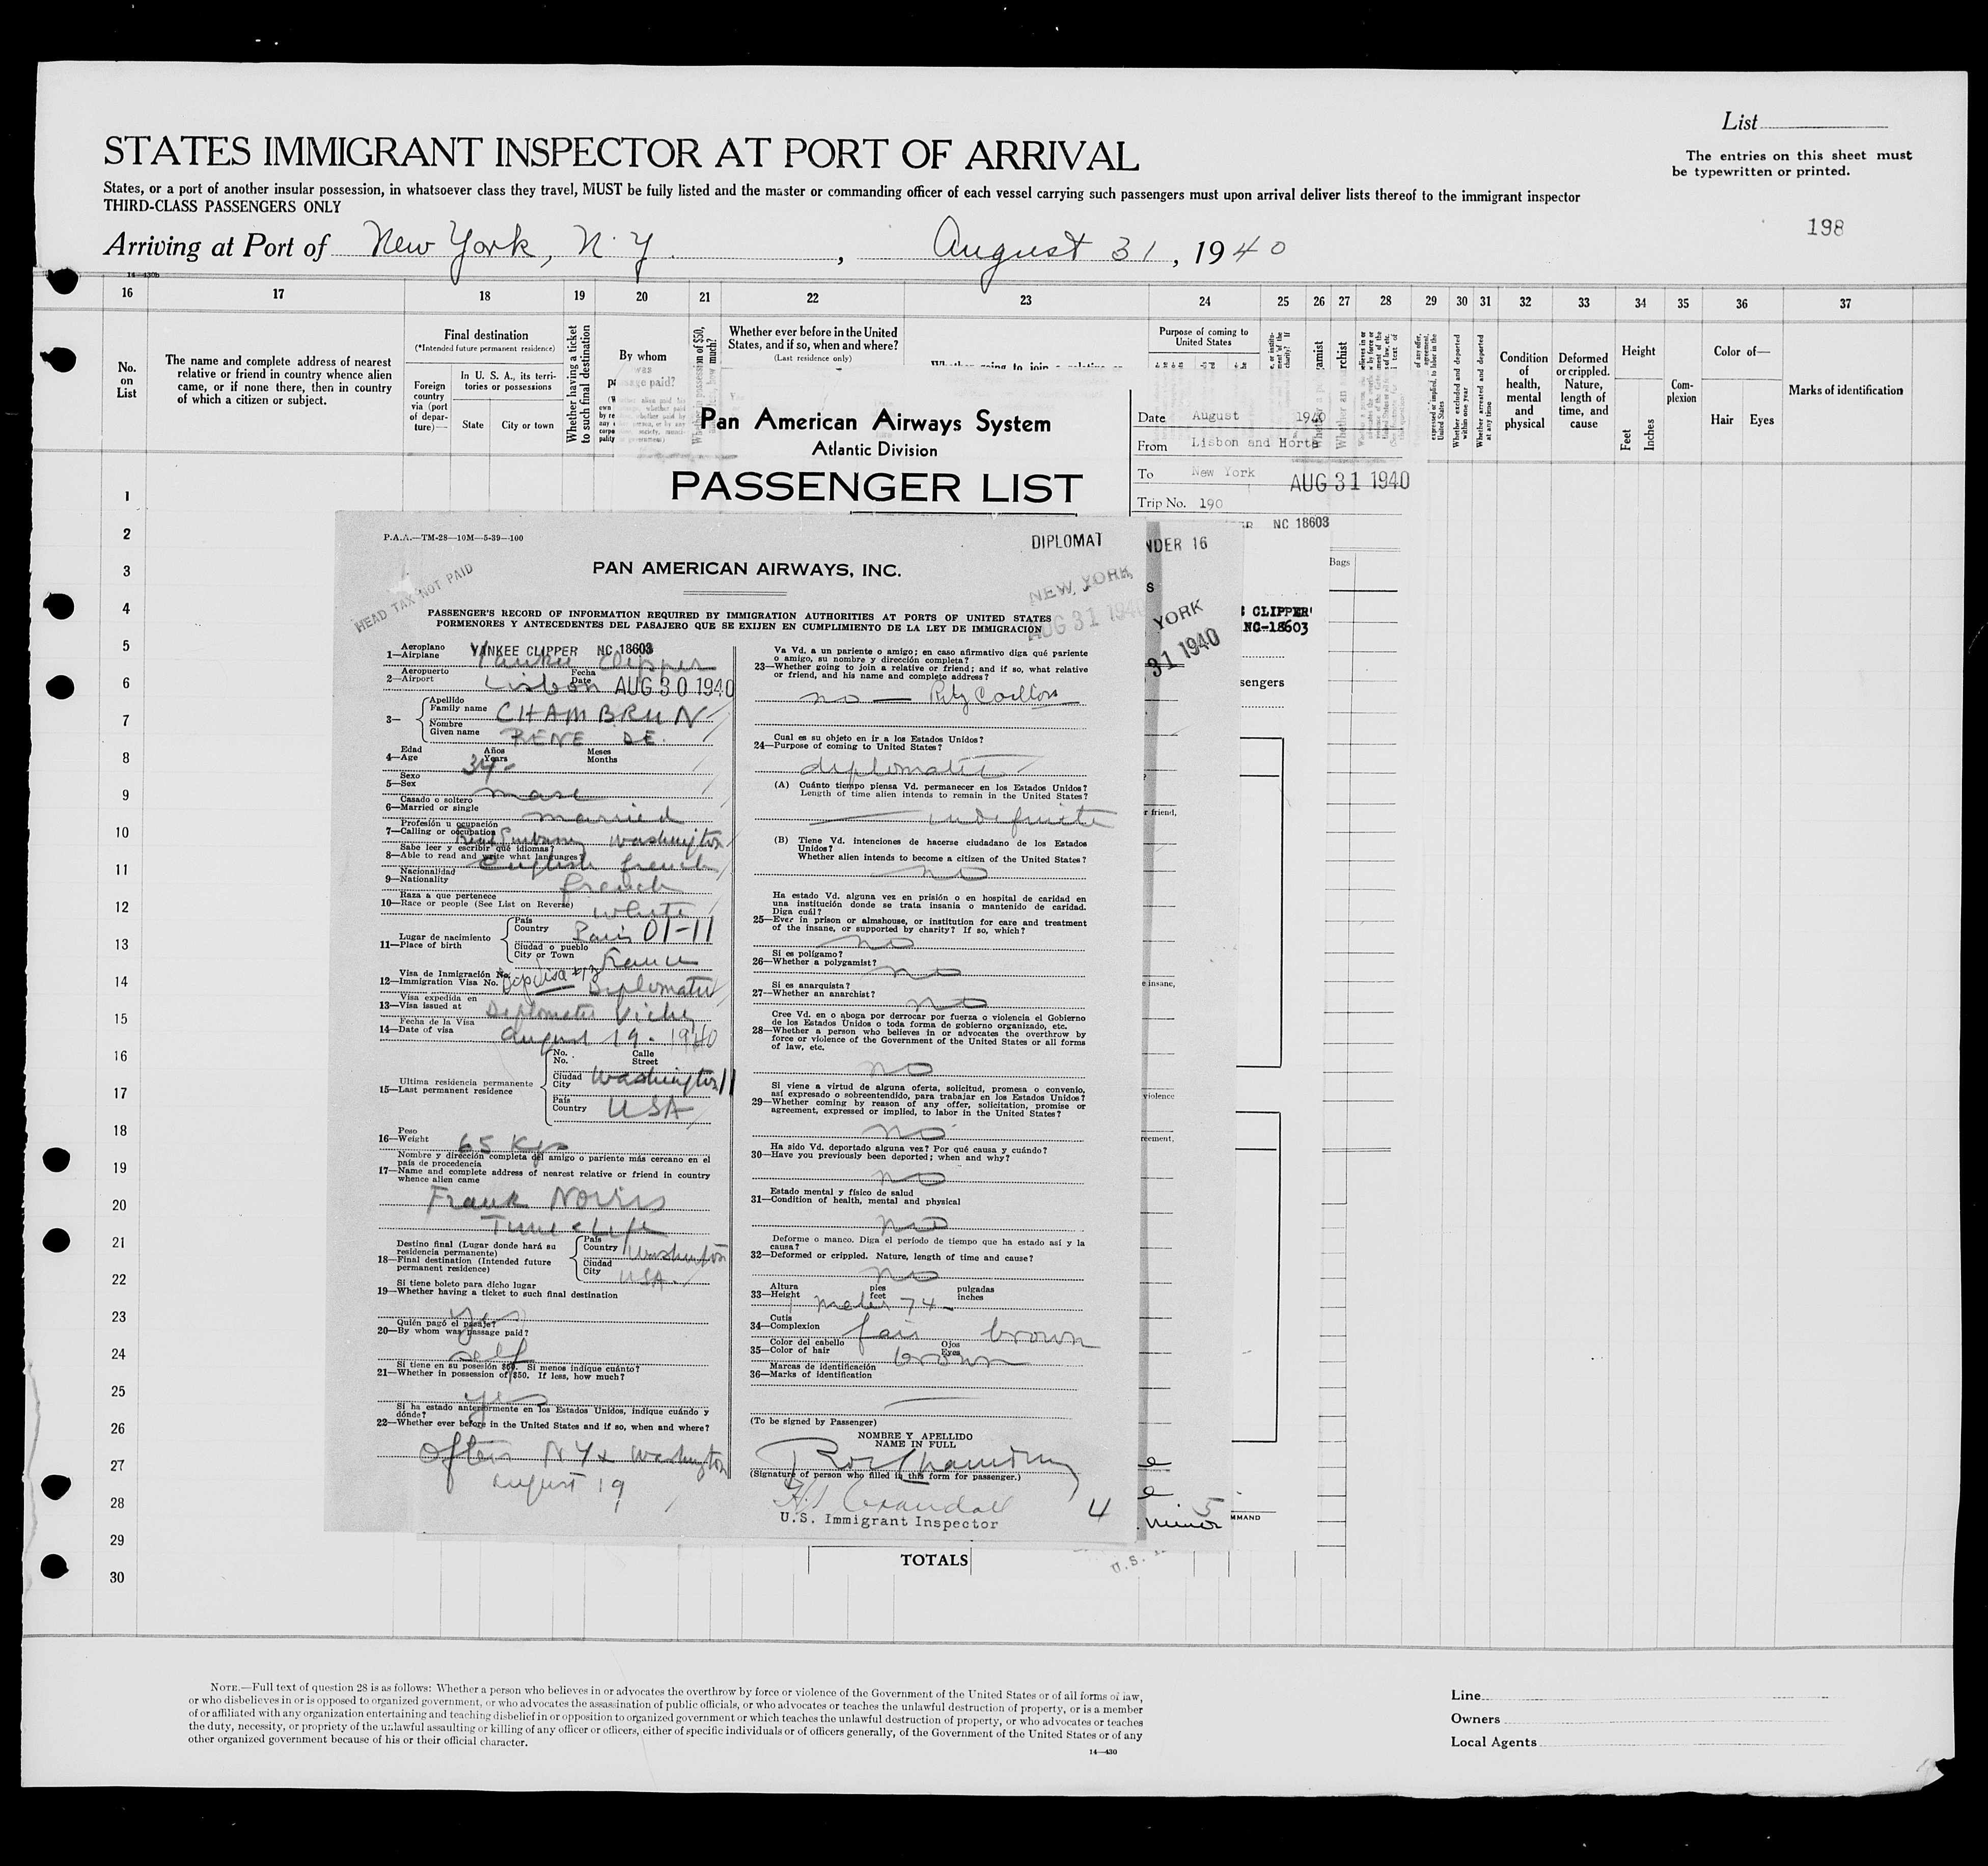 List
STATES IMMIGRANT INSPECTOR AT PORT OF ARRIVAL
The entries on this sheet must
be typewritten or printed.
States, or a port of another insular possession, in whatsoever class they travel, MUST be fully listed and the master or commanding officer of each vessel carrying such passengers must upon arrival deliver lists thereof to the immigrant inspector
THIRD-CLASS PASSENGERS ONLY
198
Arriving at Port of New York, N.Y., August 31, 1940
16 17 18 19 20 21 22 23 24 25 26 27 28 29 30 31 32 33 34 35 36 37
No. on List
The name and complete address of nearest
relative or friend in country whence alien
came, or if none there, then in country
of which a citizen or subject.
Final destination
(*Intended future permanent residence)
Foreign country via (port of departure)—
In U. S. A., its territories or possessions
State
City or town
Whether having a ticket to such final destination
By whom was passage paid?
Whether ever before in the United
States, and if so, when and where?
(Last residence only)
Purpose of coming to
United States
Whether excluded and deported within one year
Whether arrested and deported at any time
Condition of health, mental and physical
Deformed or crippled. Nature, length of time, and cause
Height
Feet
Inches
Complexion
Color of—
Hair
Eyes
Marks of identification
Pan American Airways System
Atlantic Division
PASSENGER LIST
Date August 1940
From Lisbon and Horta
To New York AUG 31 1940
Trip No. 190
NC 18603
Bags
CLIPPER
NC-18603
NDER 16
YORK
31 1940
sengers
r friend,
e insane,
violence
reement,
P.A.A.—TM-28—10M—5-39—100
DIPLOMAT
PAN AMERICAN AIRWAYS, INC.
HEAD TAX NOT PAID
NEW YORK
AUG 31 1940
PASSENGER'S RECORD OF INFORMATION REQUIRED BY IMMIGRATION AUTHORITIES AT PORTS OF UNITED STATES
PORMENORES Y ANTECEDENTES DEL PASAJERO QUE SE EXIJEN EN CUMPLIMIENTO DE LA LEY DE IMMIGRACIÓN
Aeroplano
1—Airplane YANKEE CLIPPER NC 18603
Yankee Clipper
Aeropuerto Fecha
2—Airport Lisbon Date AUG 30 1940
3— Apellido
Family name CHAMBRUN
Nombre
Given name RENE DE
Edad Años Meses
4—Age 34 Years Months
Sexo
5—Sex masc
Casado o soltero
6—Married or single married
Profesión u ocupación
7—Calling or occupation Washington
Sabe leer y escribir qué idiomas?
8—Able to read and write what languages? English french
Nacionalidad
9—Nationality french
Raza a que pertenece
10—Race or people (See List on Reverse) white
Lugar de nacimiento
11—Place of birth
País
Country Paris 01-11
Ciudad o pueblo
City or Town France
Visa de Inmigración No.
12—Immigration Visa No. Diplomatic
Visa expedida en
13—Visa issued at Diplomatic Vichy
Fecha de la Visa
14—Date of visa August 19. 1940
Ultima residencia permanente
15—Last permanent residence
No. Calle
No. Street
Ciudad
City Washington
País
Country USA
Peso
16—Weight 65 Kgs
Nombre y dirección completa del amigo o pariente más cercano en el
país de procedencia
17—Name and complete address of nearest relative or friend in country
whence alien came
Frank Norris
Time & Life
Destino final (Lugar donde hará su
residencia permanente)
18—Final destination (Intended future
permanent residence)
País
Country Washington
Ciudad
City USA.
Si tiene boleto para dicho lugar
19—Whether having a ticket to such final destination
yes
Quién pagó el pasaje?
20—By whom was passage paid?
self
Si tiene en su posesión $50. Si menos indique cuánto?
21—Whether in possession of $50. If less, how much?
yes
Si ha estado anteriormente en los Estados Unidos, indique cuándo y
dónde?
22—Whether ever before in the United States and if so, when and where?
Often N Y & Washington
August 19
Va Vd. a un pariente o amigo; en caso afirmativo diga qué pariente
o amigo, su nombre y dirección completa?
23—Whether going to join a relative or friend; and if so, what relative
or friend, and his name and complete address?
no — Ritz Carlton
Cual es su objeto en ir a los Estados Unidos?
24—Purpose of coming to United States?
diplomatic
(A) Cuánto tiempo piensa Vd. permanecer en los Estados Unidos?
Length of time alien intends to remain in the United States?
indefinite
(B) Tiene Vd. intenciones de hacerse ciudadano de los Estados
Unidos?
Whether alien intends to become a citizen of the United States?
no
Ha estado Vd. alguna vez en prisión o en hospital de caridad en
una institución donde se trata insania o mantenido de caridad.
Diga cuál?
25—Ever in prison or almshouse, or institution for care and treatment
of the insane, or supported by charity? If so, which?
no
Si es polígamo?
26—Whether a polygamist?
no
Si es anarquista?
27—Whether an anarchist?
no
Cree Vd. en o aboga por derrocar por fuerza o violencia el Gobierno
de los Estados Unidos o toda forma de gobierno organizado, etc.
28—Whether a person who believes in or advocates the overthrow by
force or violence of the Government of the United States or all forms
of law, etc.
no
Si viene a virtud de alguna oferta, solicitud, promesa o convenio,
así expresado o sobreentendido, para trabajar en los Estados Unidos?
29—Whether coming by reason of any offer, solicitation, promise or
agreement, expressed or implied, to labor in the United States?
no
Ha sido Vd. deportado alguna vez? Por qué causa y cuándo?
30—Have you previously been deported; when and why?
no
Estado mental y físico de salud
31—Condition of health, mental and physical
no
Deforme o manco. Diga el período de tiempo que ha estado así y la
causa?
32—Deformed or crippled. Nature, length of time and cause?
no
Altura pies pulgadas
33—Height feet inches
1 meter 74
Cutis
34—Complexion fair brown
Color del cabello Ojos
35—Color of hair brown Eyes
Marcas de identificación
36—Marks of identification
(To be signed by Passenger)
NOMBRE Y APELLIDO
NAME IN FULL
(Signature of person who filled in this form for passenger.)
H.S. Crandall
U.S. Immigrant Inspector
4
5
minor
MMAND
TOTALS
1
2
3
4
5
6
7
8
9
10
11
12
13
14
15
16
17
18
19
20
21
22
23
24
25
26
27
28
29
30
NOTE.—Full text of question 28 is as follows: Whether a person who believes in or advocates the overthrow by force or violence of the Government of the United States or of all forms of law,
or who disbelieves in or is opposed to organized government, or who advocates the assassination of public officials, or who advocates or teaches the unlawful destruction of property, or is a member
of or affiliated with any organization entertaining and teaching disbelief in or opposition to organized government or which teaches the unlawful destruction of property, or who advocates or teaches
the duty, necessity, or propriety of the unlawful assaulting or killing of any officer or officers, either of specific individuals or of officers generally, of the Government of the United States or of any
other organized government because of his or their official character.
14—430
Line
Owners
Local Agents